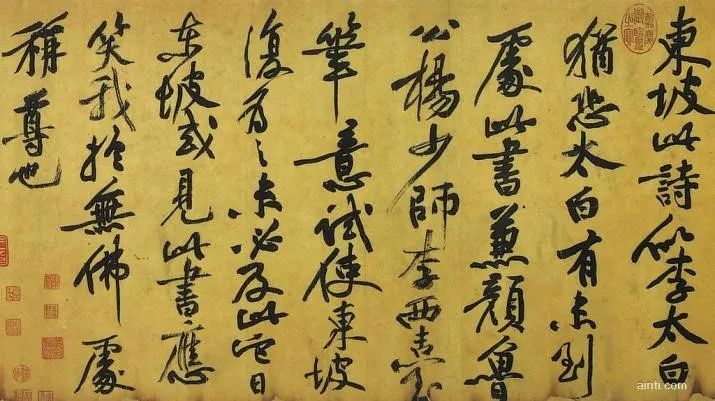 東坡此詩似李太白
猶恐太白有未到
處此書兼顏魯
公楊少師李西臺
筆意試使東坡
復為之未必及此它日
東坡或見此書應
笑我於無佛處
稱尊也
airiti.com